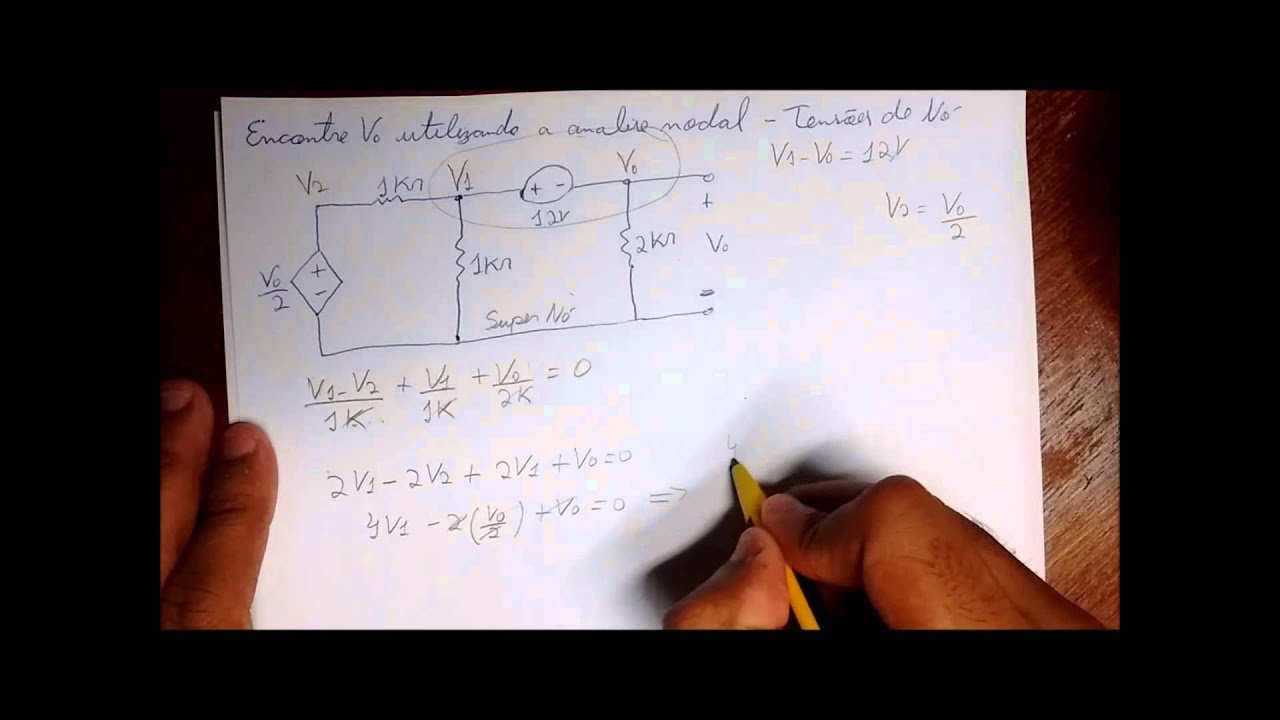 Encontre Vo utilizando a analise nodal - Tensões do Nó
V1 - Vo = 12V
V2 = Vo/2
V2 1KΩ V1 + - Vo
12V
+
Vo/2 + - 1KΩ 2KΩ Vo
Super Nó
(V1 - V2)/1K + V1/1K + Vo/2K = 0
2V1 - 2V2 + 2V1 + Vo = 0
4V1 - 2(Vo/2) + Vo = 0 =>